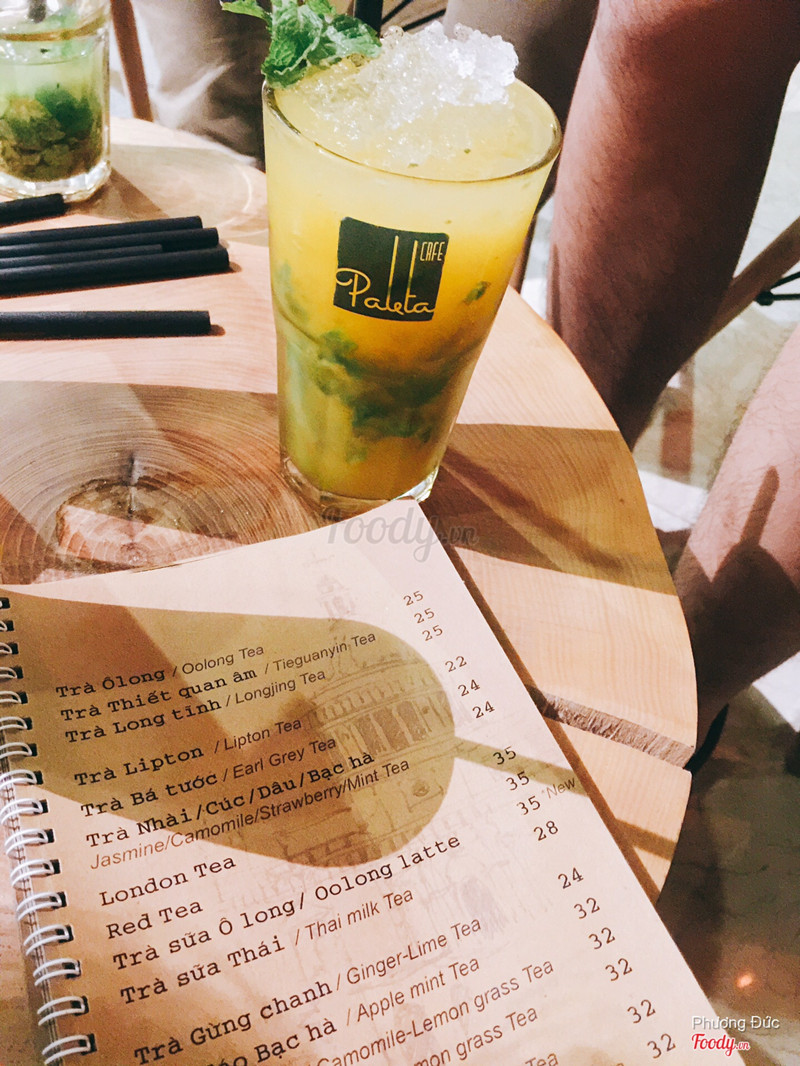 CAFE
Paleta
Foody.vn
Trà Ôlong / Oolong Tea 25
Trà Thiết quan âm / Tieguanyin Tea 25
Trà Long tĩnh / Longjing Tea 25
Trà Lipton / Lipton Tea 22
Trà Bá tước / Earl Grey Tea 24
Trà Nhài/Cúc/Dâu/Bạc hà 24
Jasmine/Camomile/Strawberry/Mint Tea
London Tea 35
Red Tea 35
Trà sữa Ô long/ Oolong latte 35 *New
Trà sữa Thái / Thai milk Tea 28
Trà Gừng chanh / Ginger-Lime Tea 24
Bạc hà / Apple mint Tea 32
Camomile-Lemon grass Tea 32
grass Tea 32
Tea 32
32
Phương Đức
Foody.vn